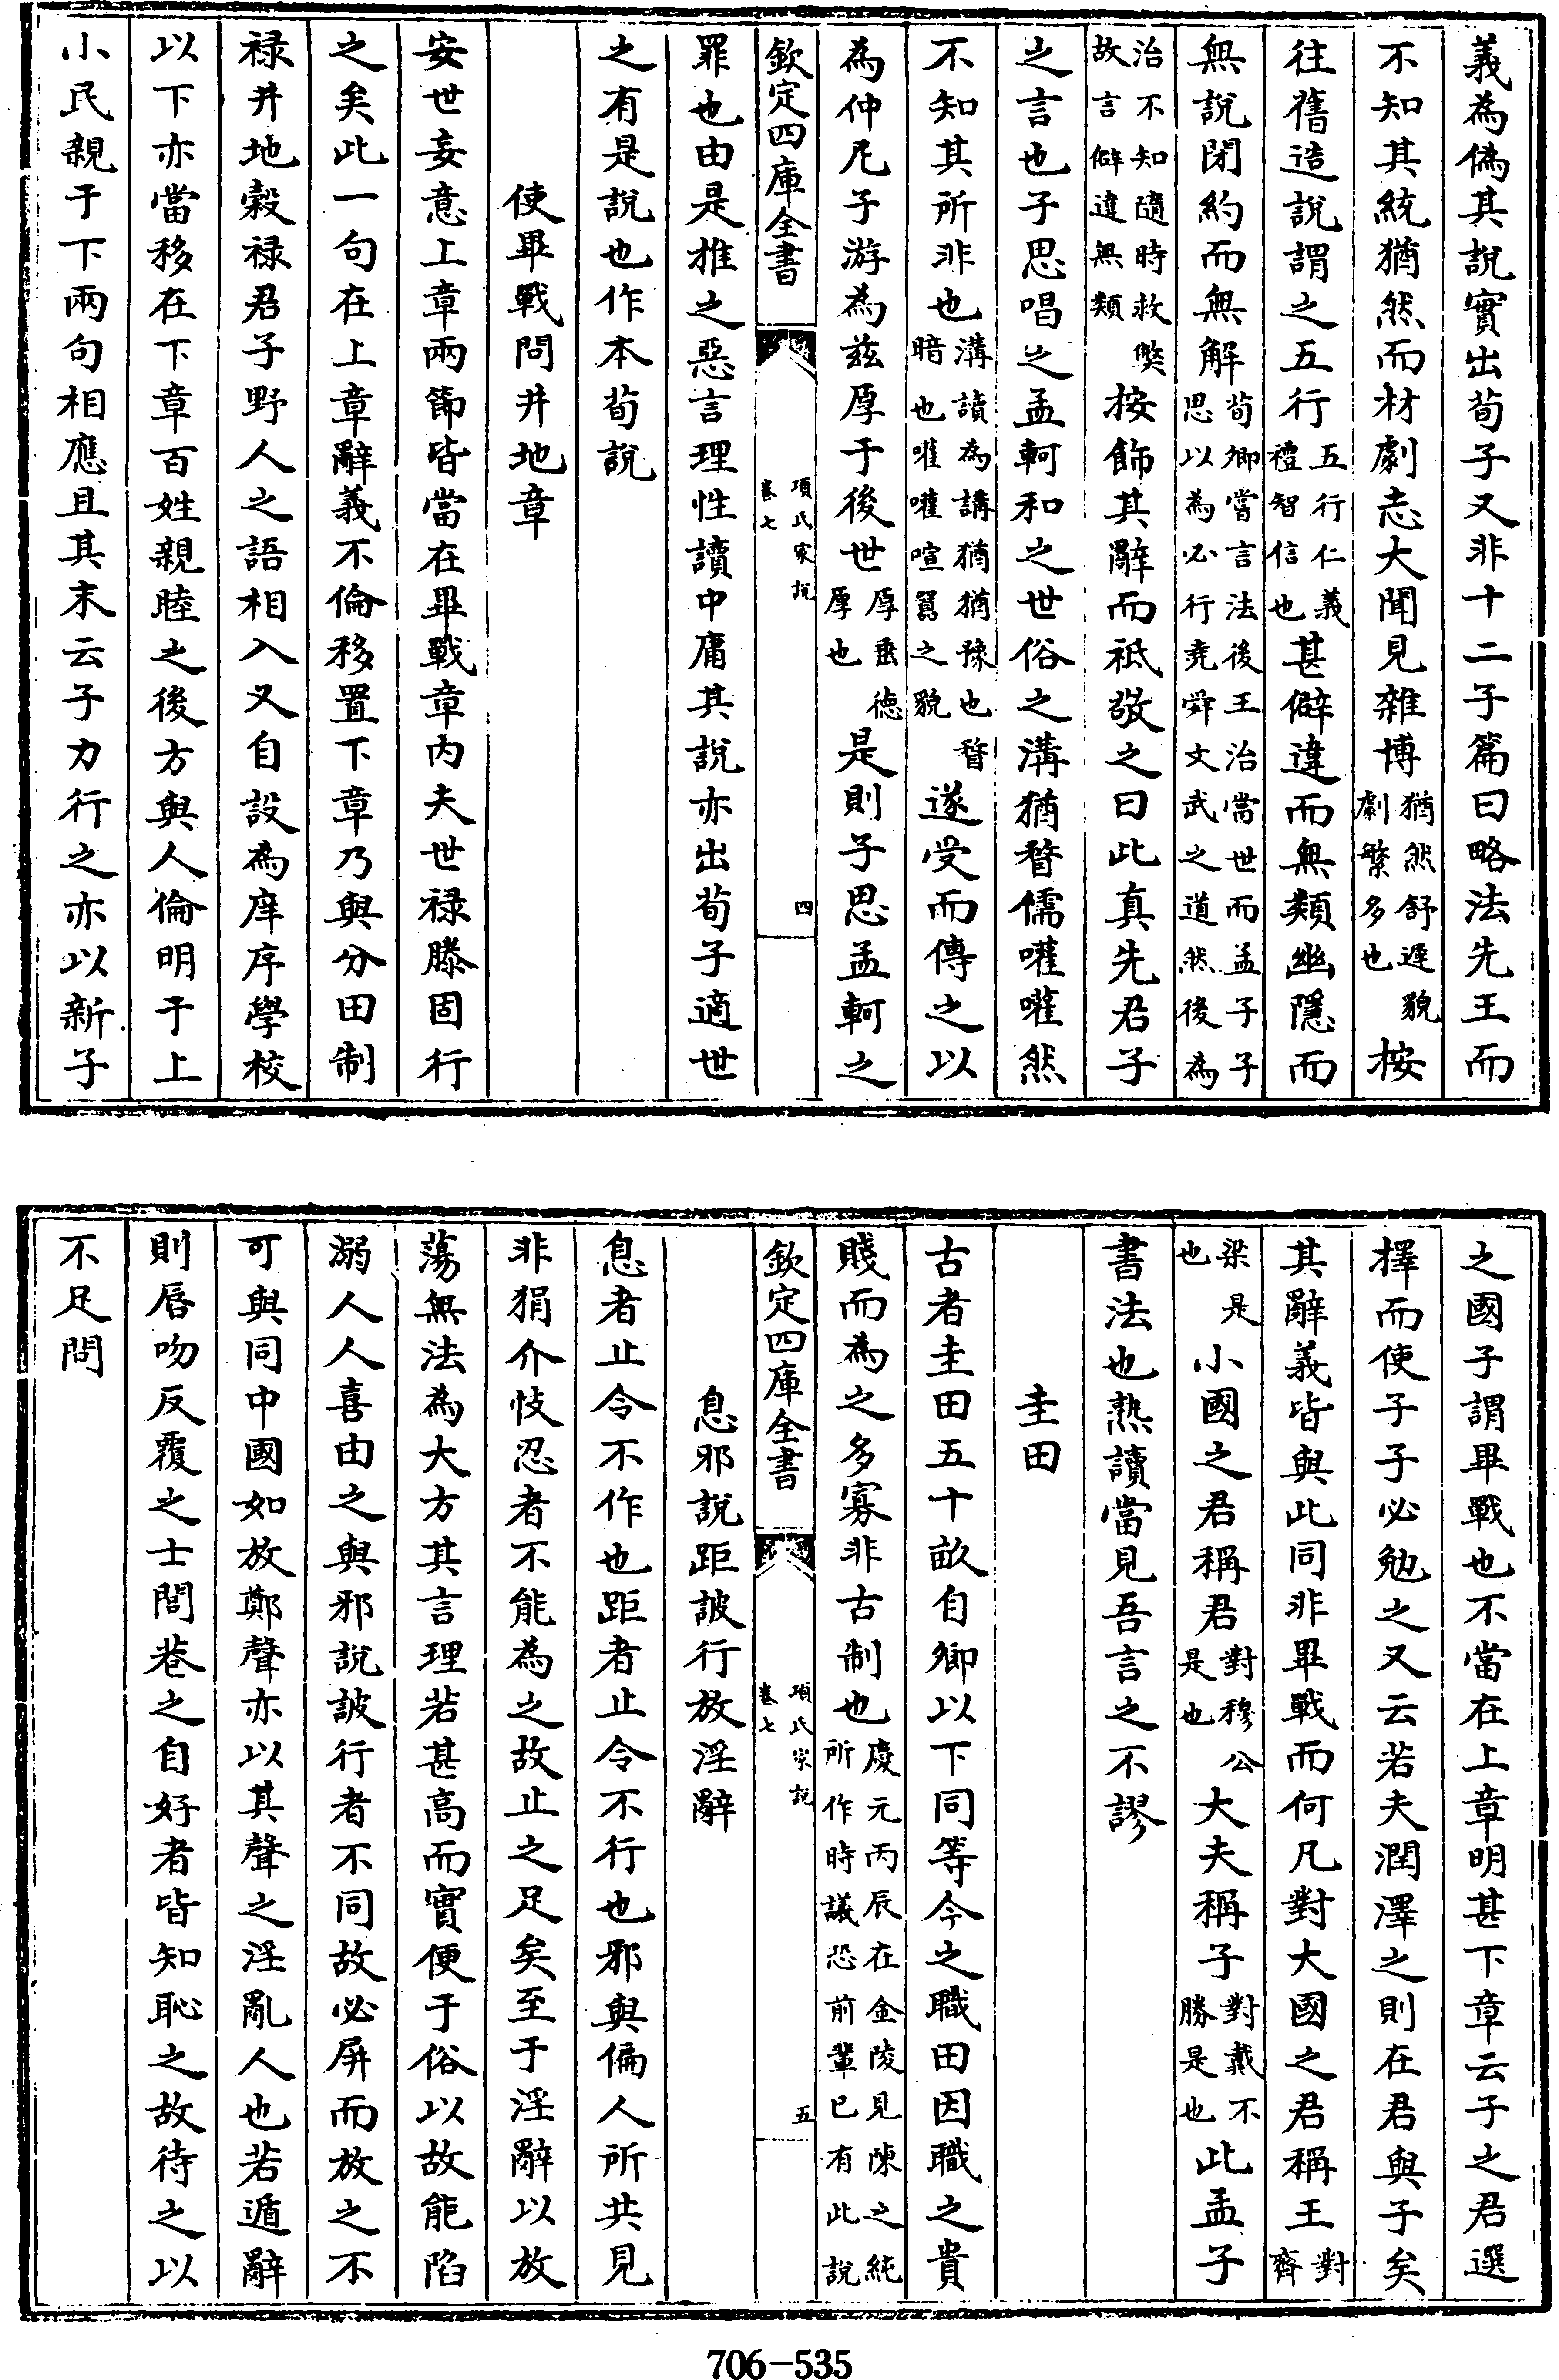 義為偽其說實出荀子又非十二子篇曰略法先王而
不知其統猶然而材劇志大聞見雜博猶然舒遲貌劇繁多也桉
往舊造說謂之五行五行仁義禮智信也甚僻違而無類幽隱而
無說閉約而無解荀卿當言法後王治當世而孟子子思以為必行堯舜文武之道然後為
治不知隨時救獘故言僻違無類按飾其辭而祗敬之曰此真先君子
之言也子思唱之孟軻和之世俗之溝猶瞀儒嚾嚾然
不知其所非也溝讀為講猶猶豫也瞀暗也嚾嚾喧囂之貌遂受而傳之以
為仲尼子游為兹厚于後世厚垂德厚也是則子思孟軻之
欽定四庫全書 項氏家說 卷七 四
罪也由是推之惡言理性讀中庸其說亦出荀子適世
之有是說也作本荀說
使畢戰問井地章
安世妄意上章兩節皆當在畢戰章内夫世禄滕固行
之矣此一句在上章辭義不倫移置下章乃與分田制
禄井地穀禄君子野人之語相入又自設為庠序學校
以下亦當移在下章百姓親睦之後方與人倫明于上
小民親于下兩句相應且其末云子力行之亦以新子
之國子謂畢戰也不當在上章明甚下章云子之君選
擇而使子子必勉之又云若夫潤澤之則在君與子矣
其辭義皆與此同非畢戰而何凡對大國之君稱王對齊
梁是也小國之君稱君對穆公是也大夫稱子對戴不勝是也此孟子
書法也熟讀當見吾言之不謬
圭田
古者圭田五十畝自卿以下同等今之職田因職之貴
賤而為之多寡非古制也慶元丙辰在金陵見陳之純所作時議恐前輩已有此說
欽定四庫全書 項氏家說 卷七 五
息邪說距詖行放淫辭
息者止令不作也距者止令不行也邪與偏人所共見
非狷介忮忍者不能為之故止之足矣至于淫辭以放
蕩無法為大方其言理若甚高而實便于俗以故能陷
溺人人喜由之與邪說詖行者不同故必屏而放之不
可與同中國如放鄭聲亦以其聲之淫亂人也若遁辭
則唇吻反覆之士閭巷之自好者皆知恥之故待之以
不足問
706-535